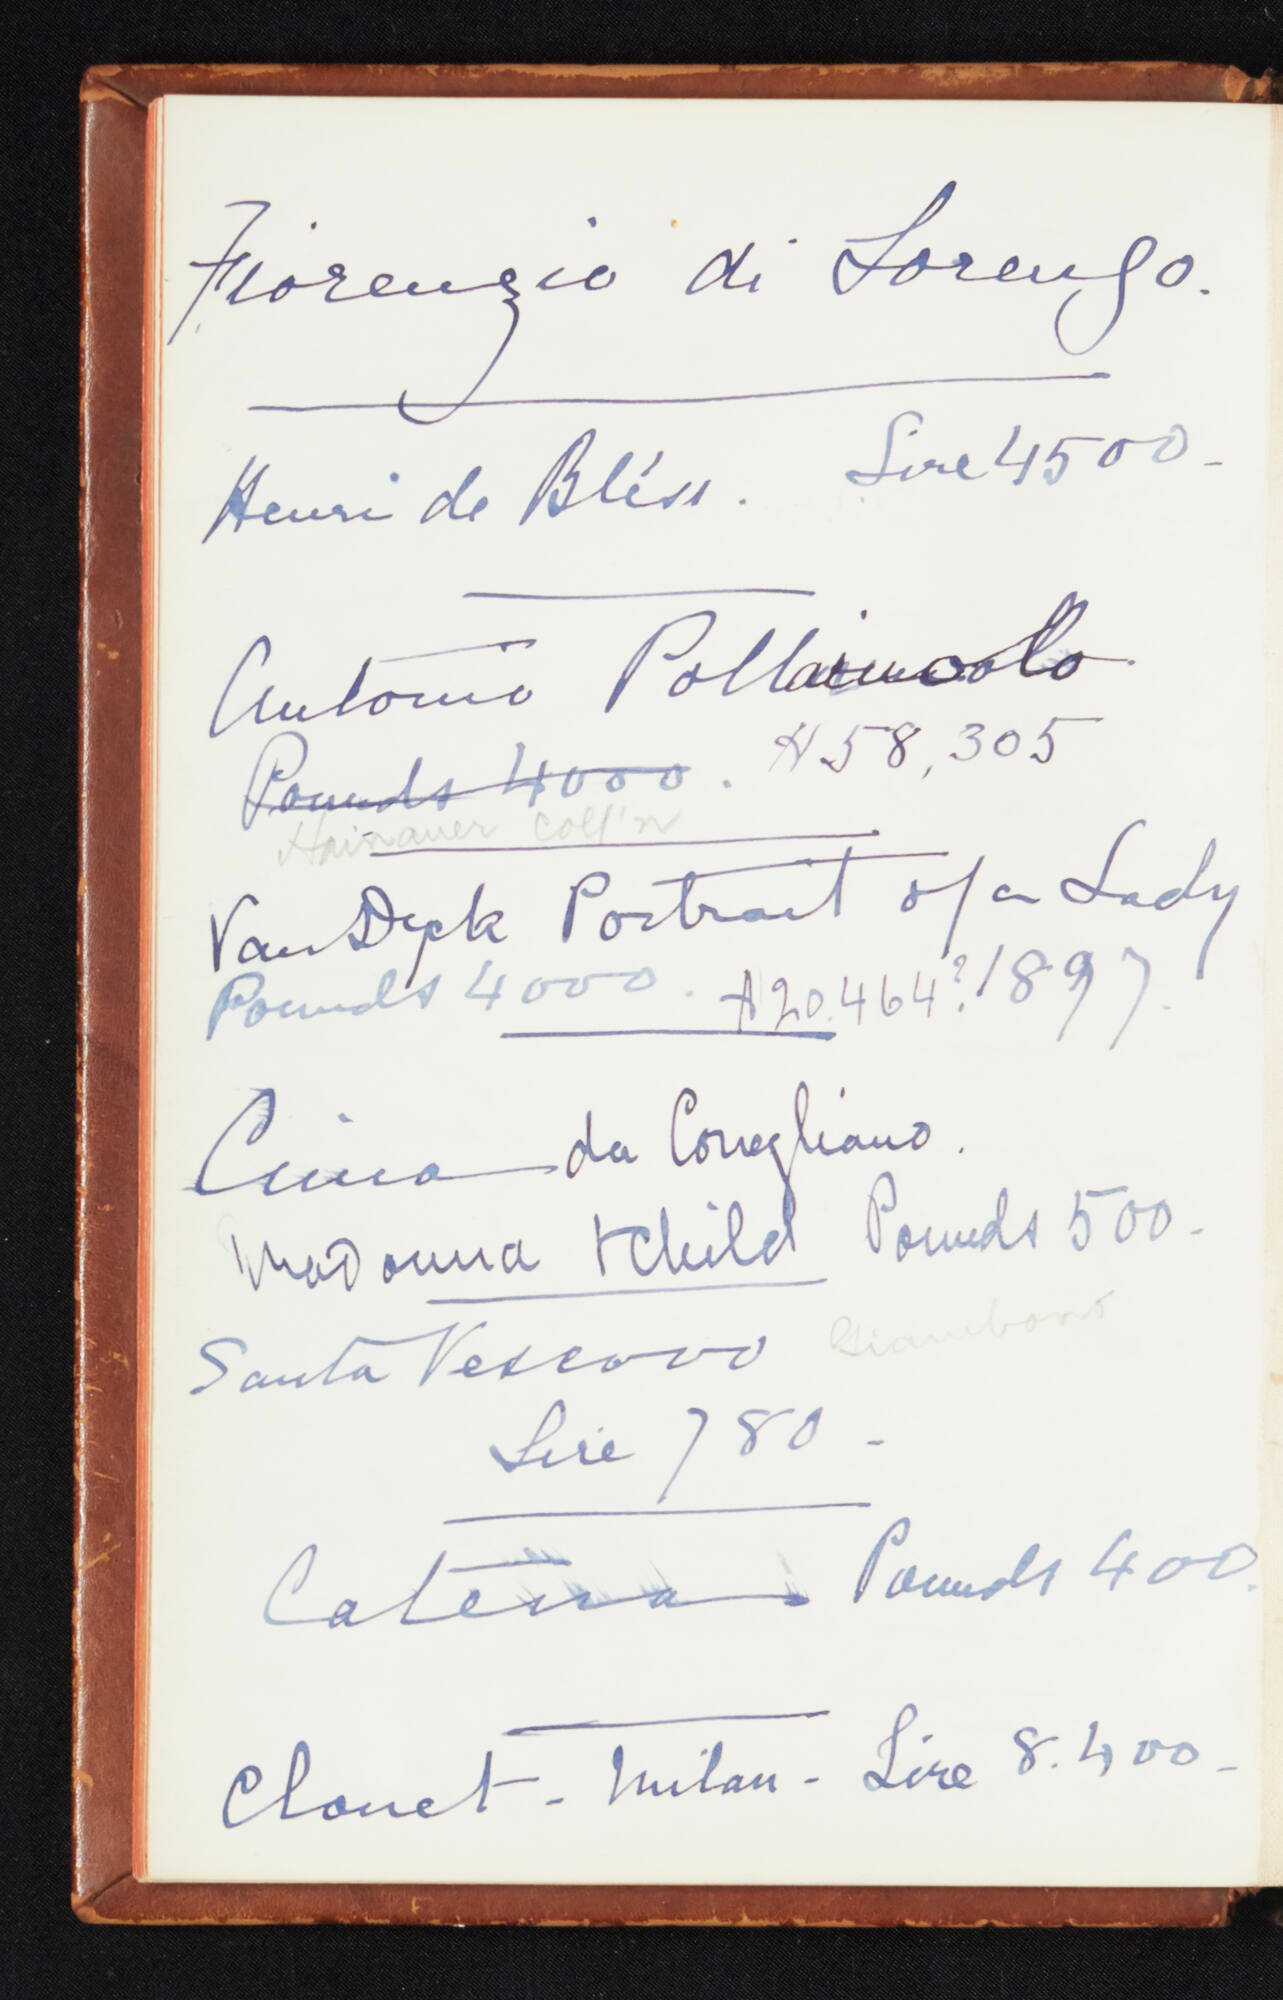 Fiorenzio di Lorenzo.
Henri de Bléss. Lire 4500-
Antonio Pollaiuolo
Pounds 4000. $58,305
Hainauer Coll'n
Van Dyck Portrait of a Lady
Pounds 4000. $20.464? 1897.
Cima da Conegliano.
Madonna & Child Pounds 500-
Santa Vescovo Giambono
Lire 780-
Catena Pounds 400.
Clouet - Milan - Lire 8.400-